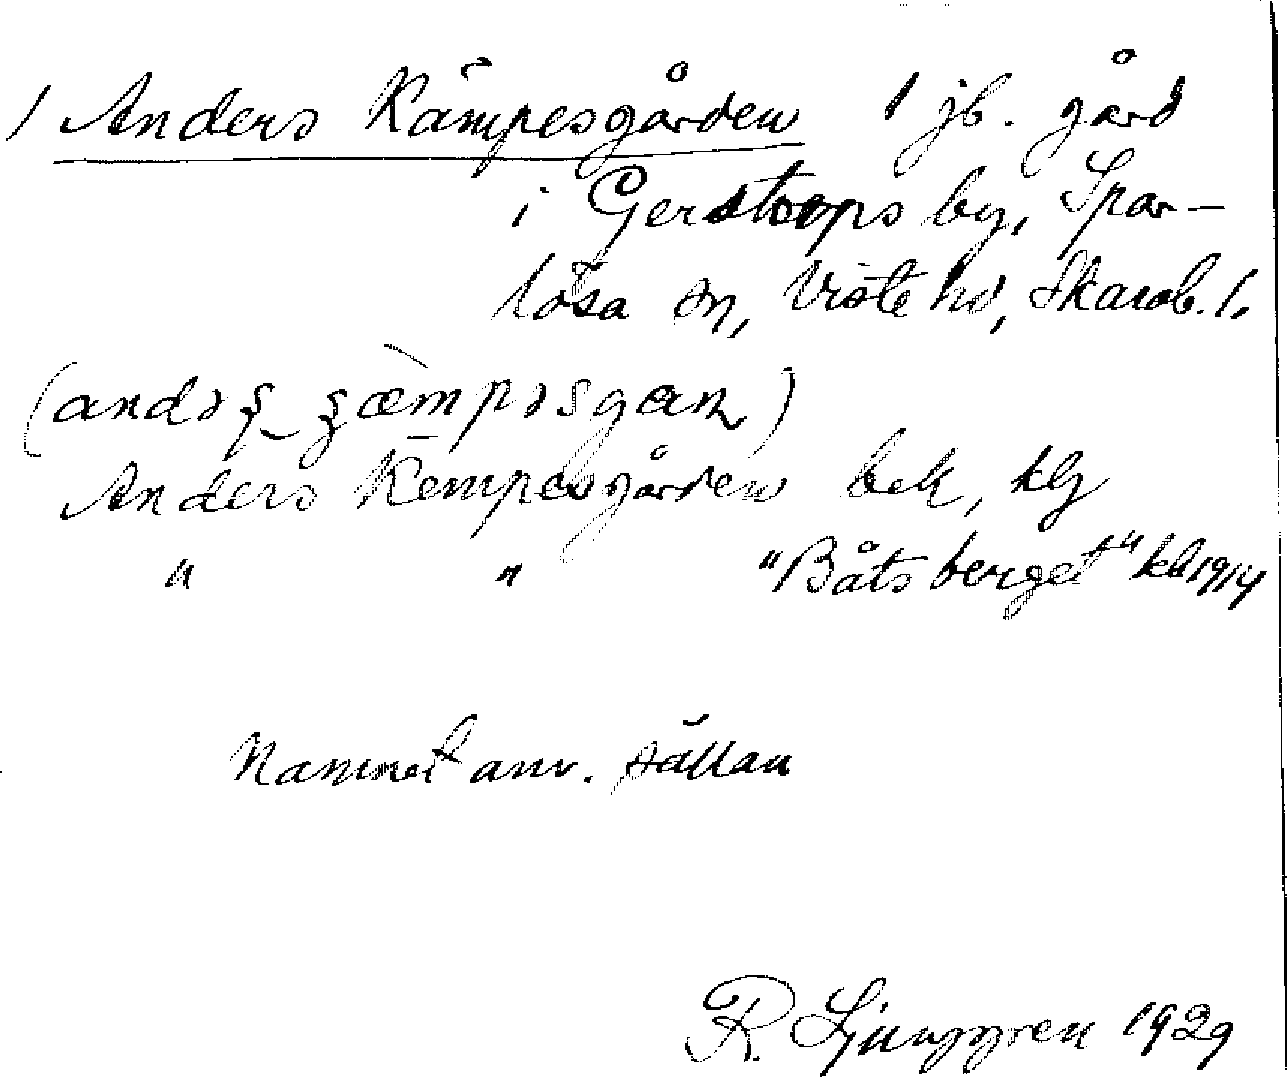 1 Anders Kämpesgården 1 jb. gård
i Gerstorps by, Spar-
lösa sn, Viste hd, Skarab. l.
Anders Kempesgården bek, klg
" " "Båtsberget" kb 1914
Namnet anv. sällan
R. Ljunggren 1929